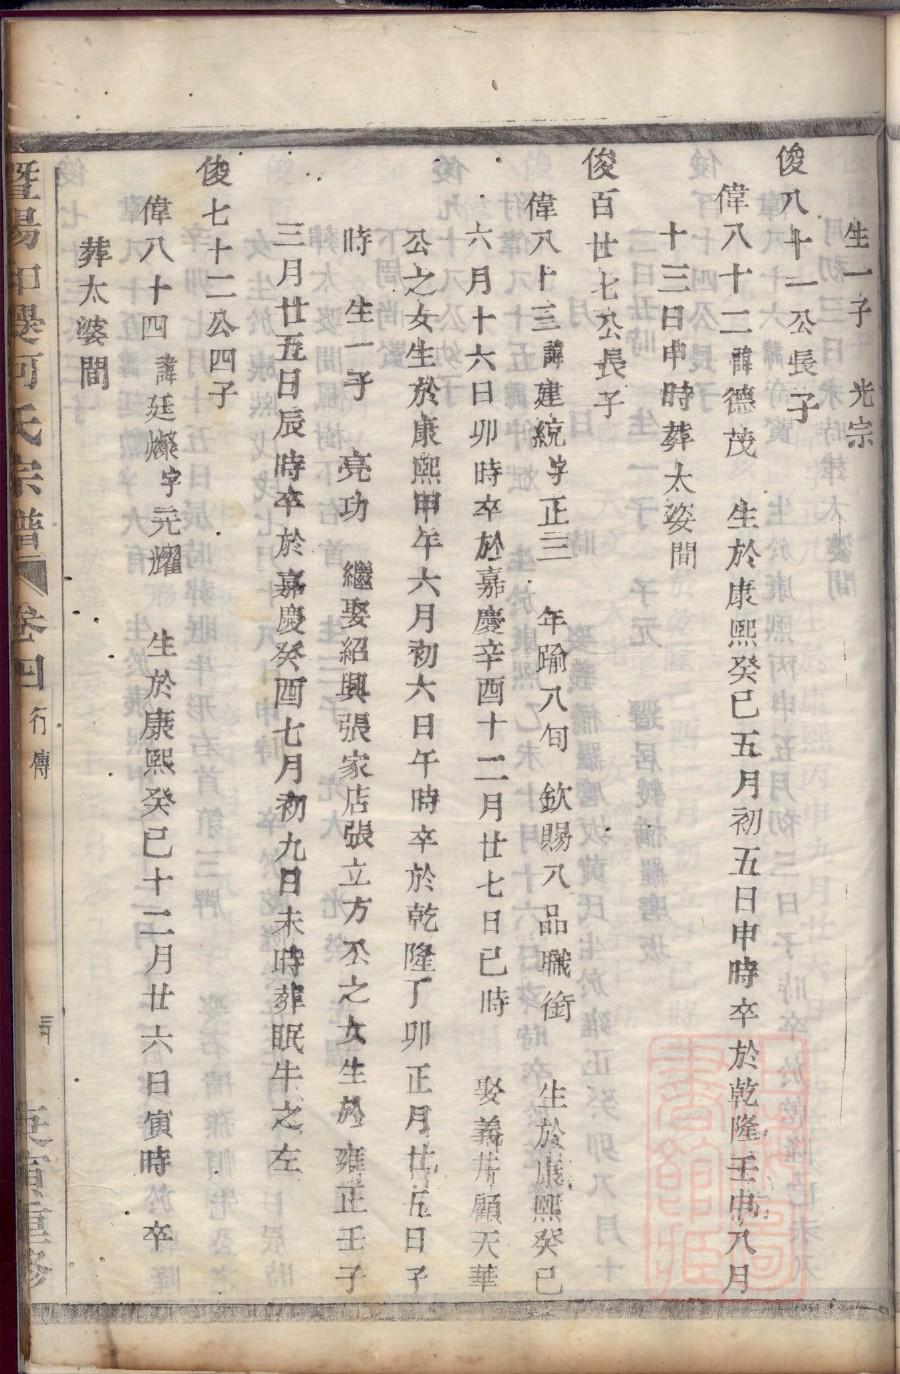 生一子　光宗
俊八十一公長子
偉八十二諱德茂　生於康熙癸巳五月初五日申時卒於乾隆壬申八月
十三日申時葬太婆間
俊百廿七公長子
偉八十三諱建統字正三　年踰八旬　欽賜八品職銜　生於康熙癸巳
六月十六日卯時卒於嘉慶辛酉十二月廿七日巳時　娶義井顧天華
公之女生於康熙甲午六月初六日午時卒於乾隆丁卯正月廿五日子
時　生一子　亮功　繼娶紹興張家店張立方公之女生於雍正壬子
三月廿五日辰時卒於嘉慶癸酉七月初九日未時葬眠牛之左
俊七十二公四子
偉八十四諱廷燦字元耀　生於康熙癸巳十二月廿六日寅時卒
葬太婆間
暨陽 何氏宗譜　卷四　行傳
重修